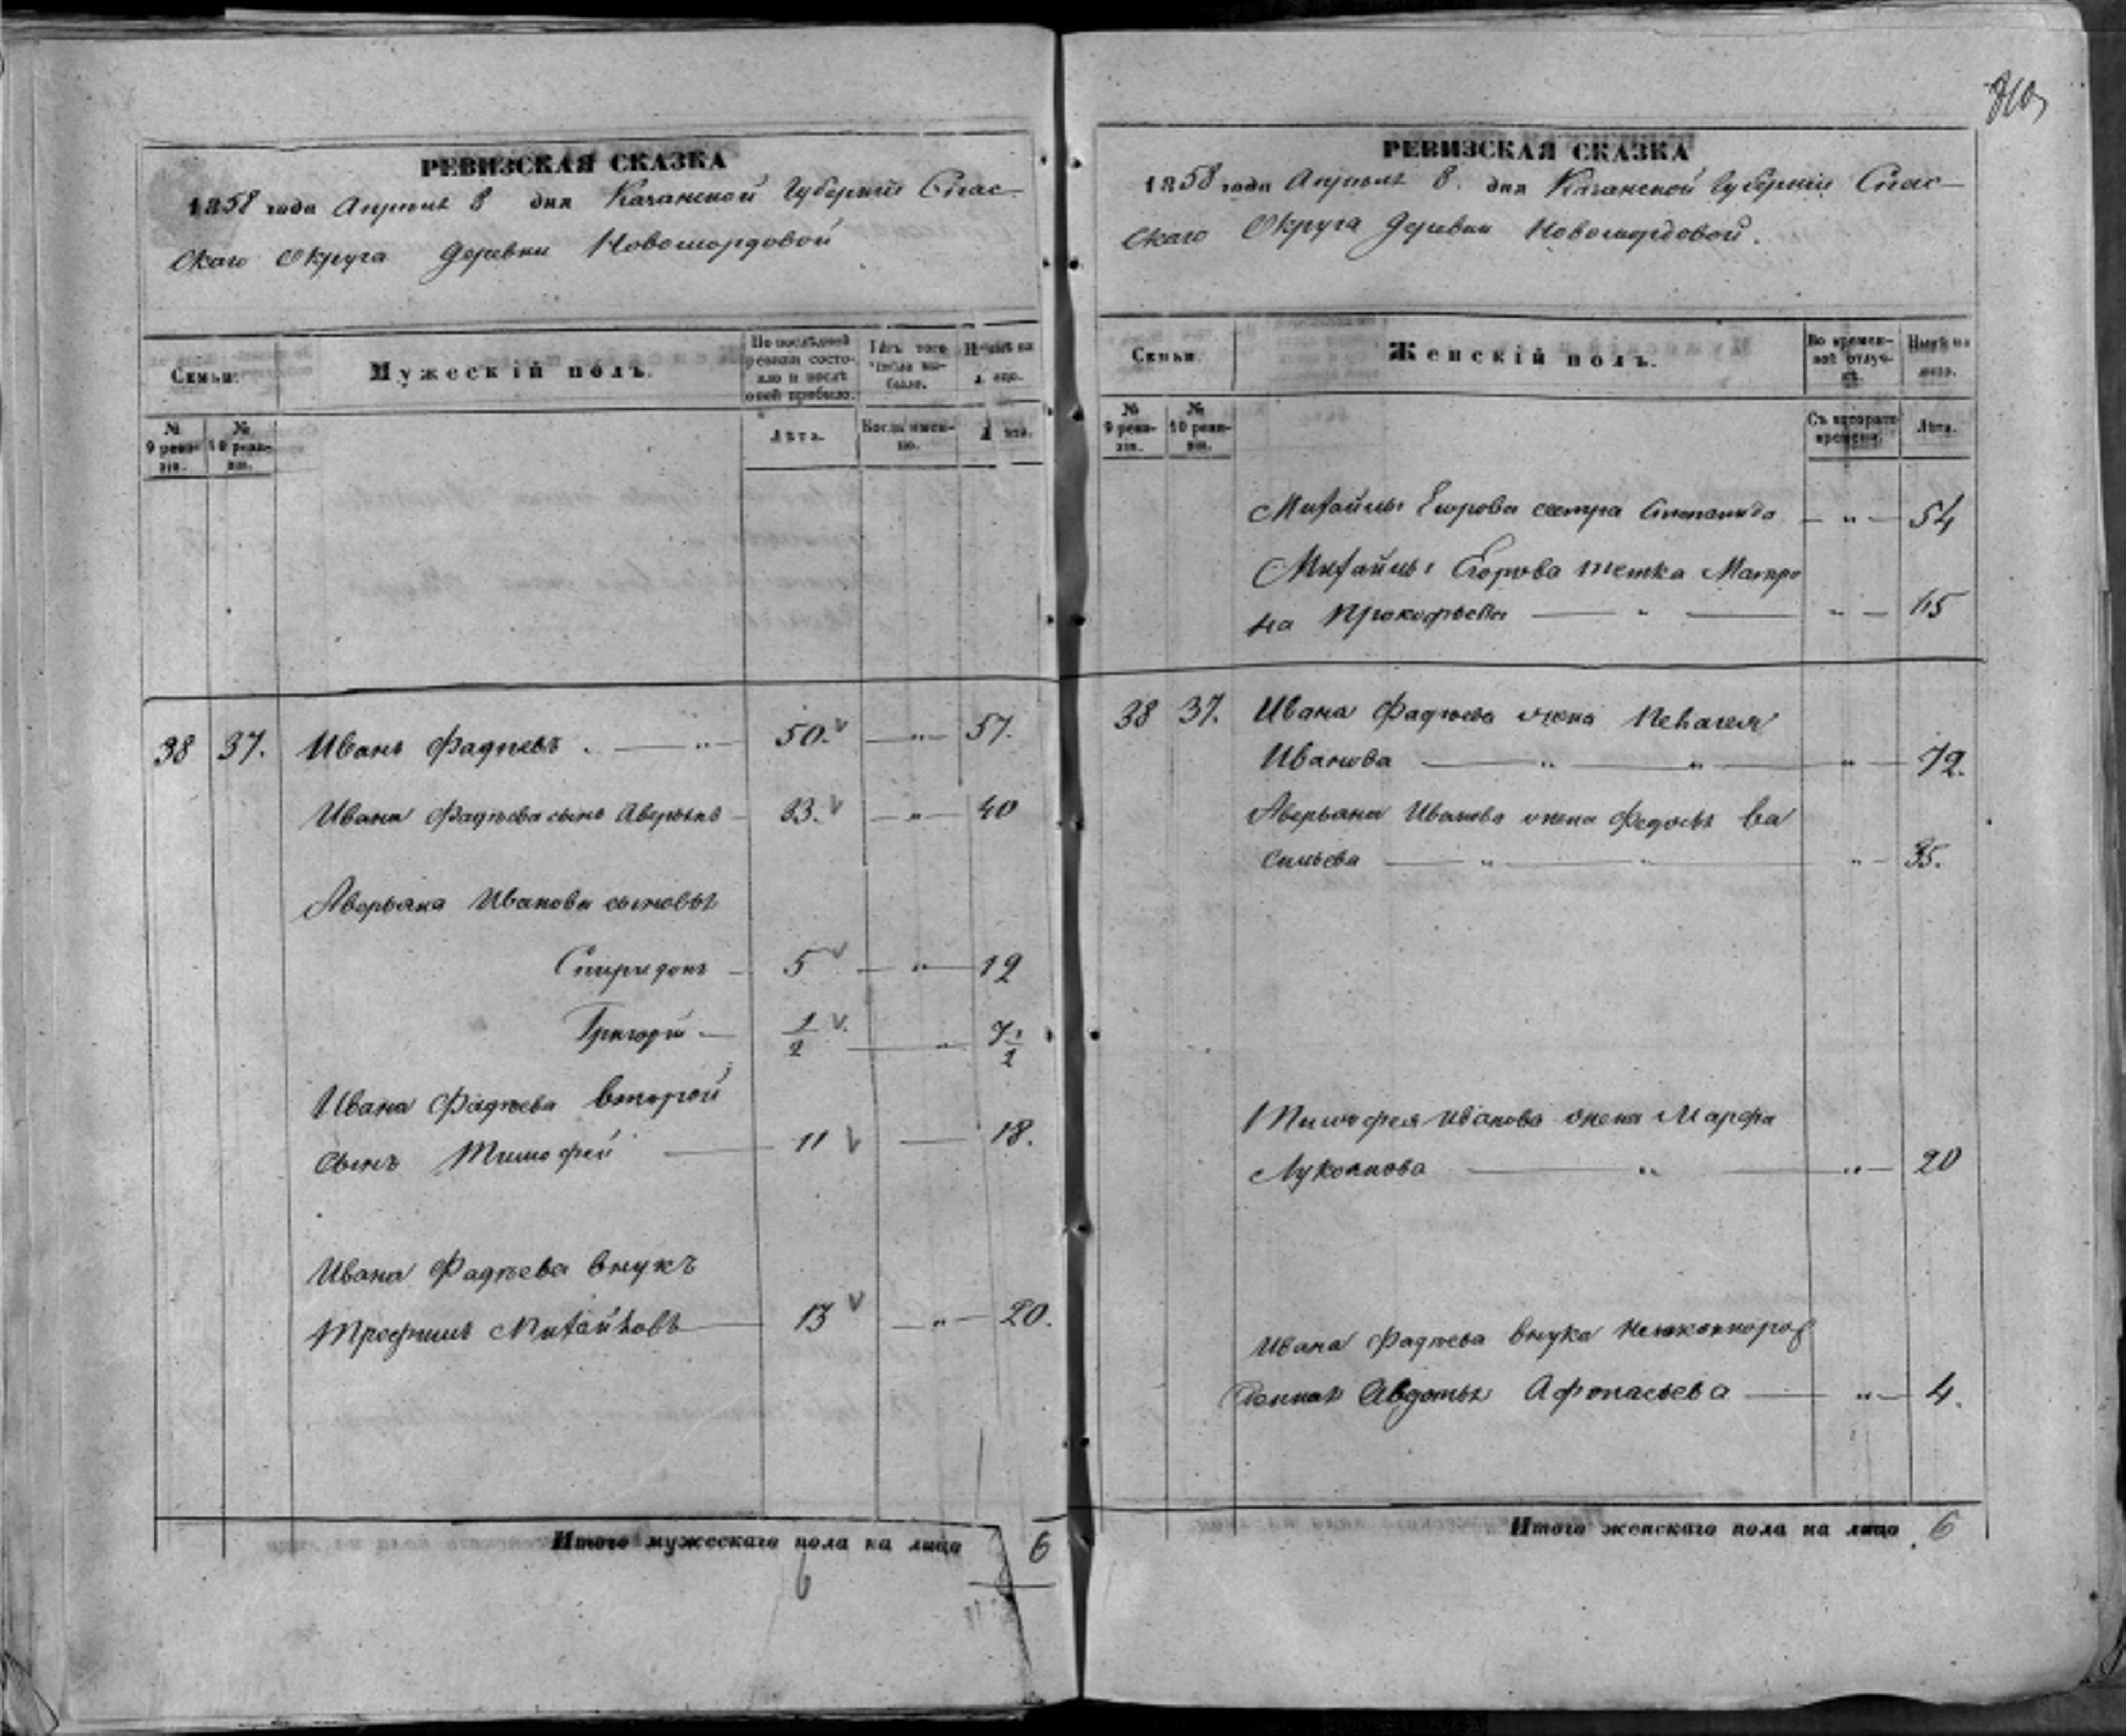 РЕВИЗСКАЯ СКАЗКА
1858 года Апреля 8 дня Казанской Губернии Спас-
скаго Округа деревни Новомордовой
Семьи.
Мужескій полъ.
По последней ревизіи состояло и после оной прибыло.
Изъ того числа выбыло.
Ныне на лицо.
№ 9 ревизіи.
№ 10 ревизіи.
Лѣта.
Когда именно.
Лѣта.
38 37. Иванъ Фадѣевъ 50. " 57.
Ивана Фадѣева сынъ Аверьянъ 33. " 40
Аверьяна Иванова сыновья
Спиридонъ 5 " 12
Григорій 1/2 " 7 1/2
Ивана Фадѣева второй
сынъ Тимофей 11 18.
Ивана Фадѣева внукъ
Трофимъ Михайловъ 13 " 20.
Итого мужескаго пола на лицо 6
6
РЕВИЗСКАЯ СКАЗКА
1858 года Апреля 8. дня Казанской Губерніи Спас-
скаго Округа деревни Новомордовой.
Семьи.
Женскій полъ.
Во временной отлучкѣ.
Нынѣ на лицо.
№ 9 ревизіи.
№ 10 ревизіи.
Съ котораго времени.
Лѣта.
Михайлы Егорова сестра Степанида " 54
Михайлы Егорова тетка Матре
на Прокофьева " " 65
38 37. Ивана Фадѣева жена Пелагея
Иванова " " " 72.
Аверьяна Иванова жена Федосья Ва
сильева " " " 35.
Тимофея Иванова жена Марфа
Лукоянова " " 20
Ивана Фадѣева внука незаконнорож
денная Авдотья Афонасьева " 4.
Итого женскаго пола на лицо 6